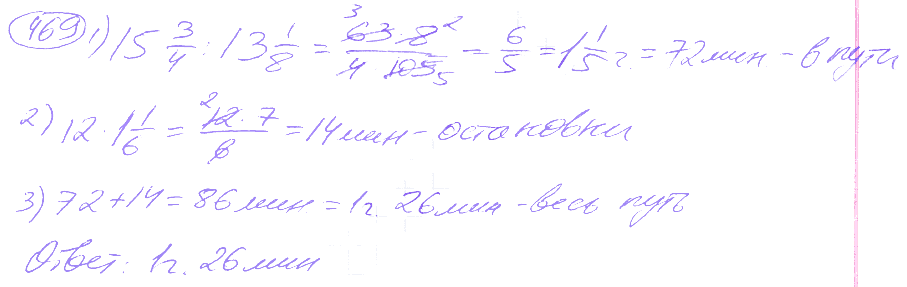 469 1) 15 3/4 : 13 1/8 = 63 · 8 / 4 · 105 = 6/5 = 1 1/5 ч. = 72 мин - в пути
2) 12 · 1 1/6 = 12 · 7 / 6 = 14 мин - остановки
3) 72 + 14 = 86 мин = 1 ч. 26 мин - весь путь
Ответ: 1 ч. 26 мин